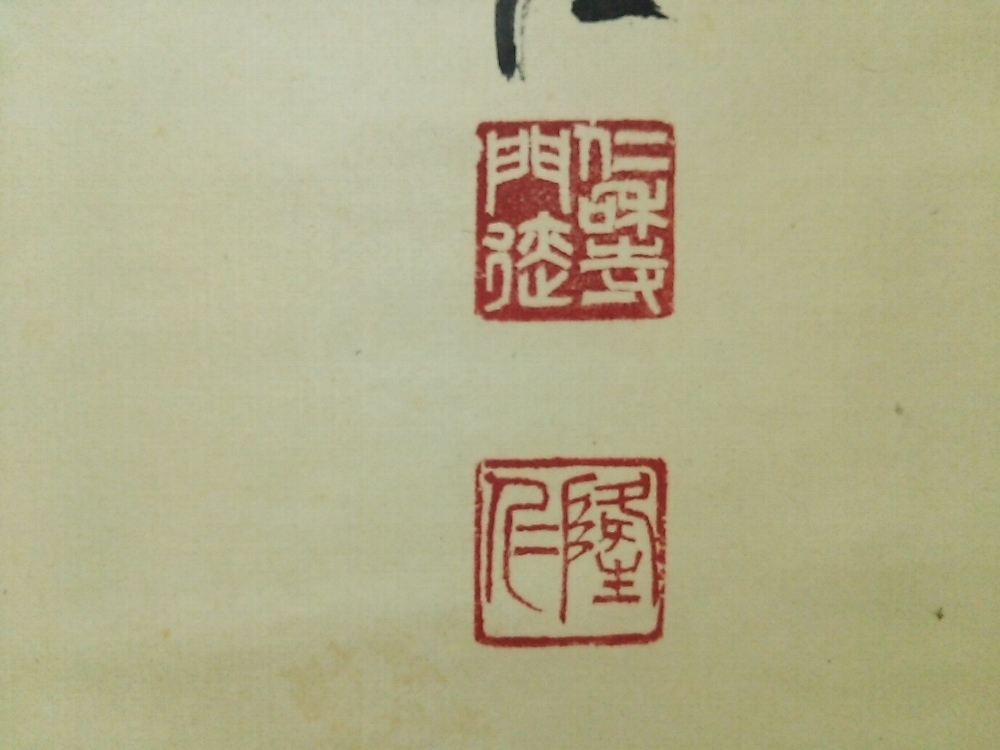 仁和寺
門徒
隆
仁